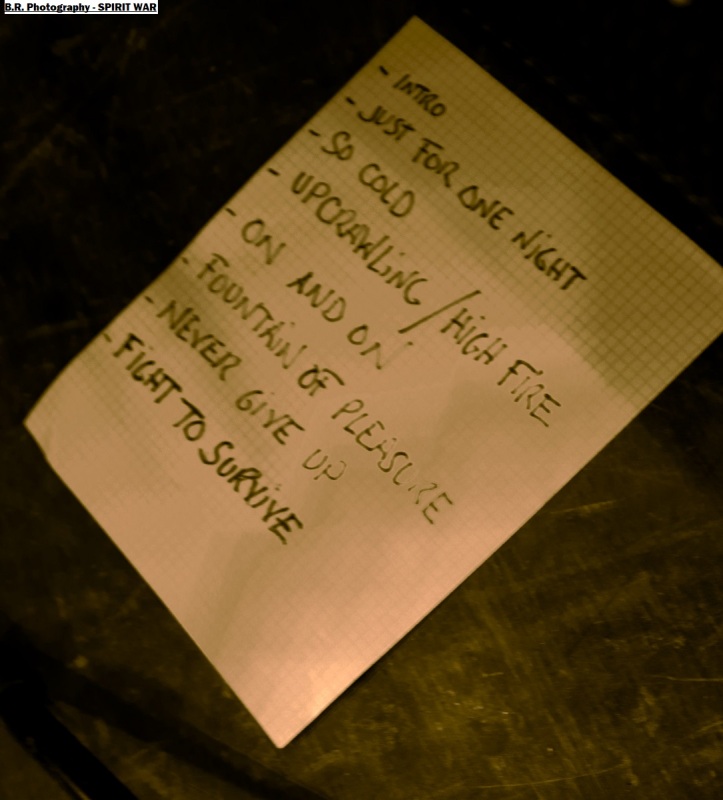 B.R. Photography - SPIRIT WAR
- INTRO
- JUST FOR ONE NIGHT
- SO COLD
- UPCRAWLING / HIGH FIRE
- ON AND ON
- FOUNTAIN OF PLEASURE
- NEVER GIVE UP
- FIGHT TO SURVIVE